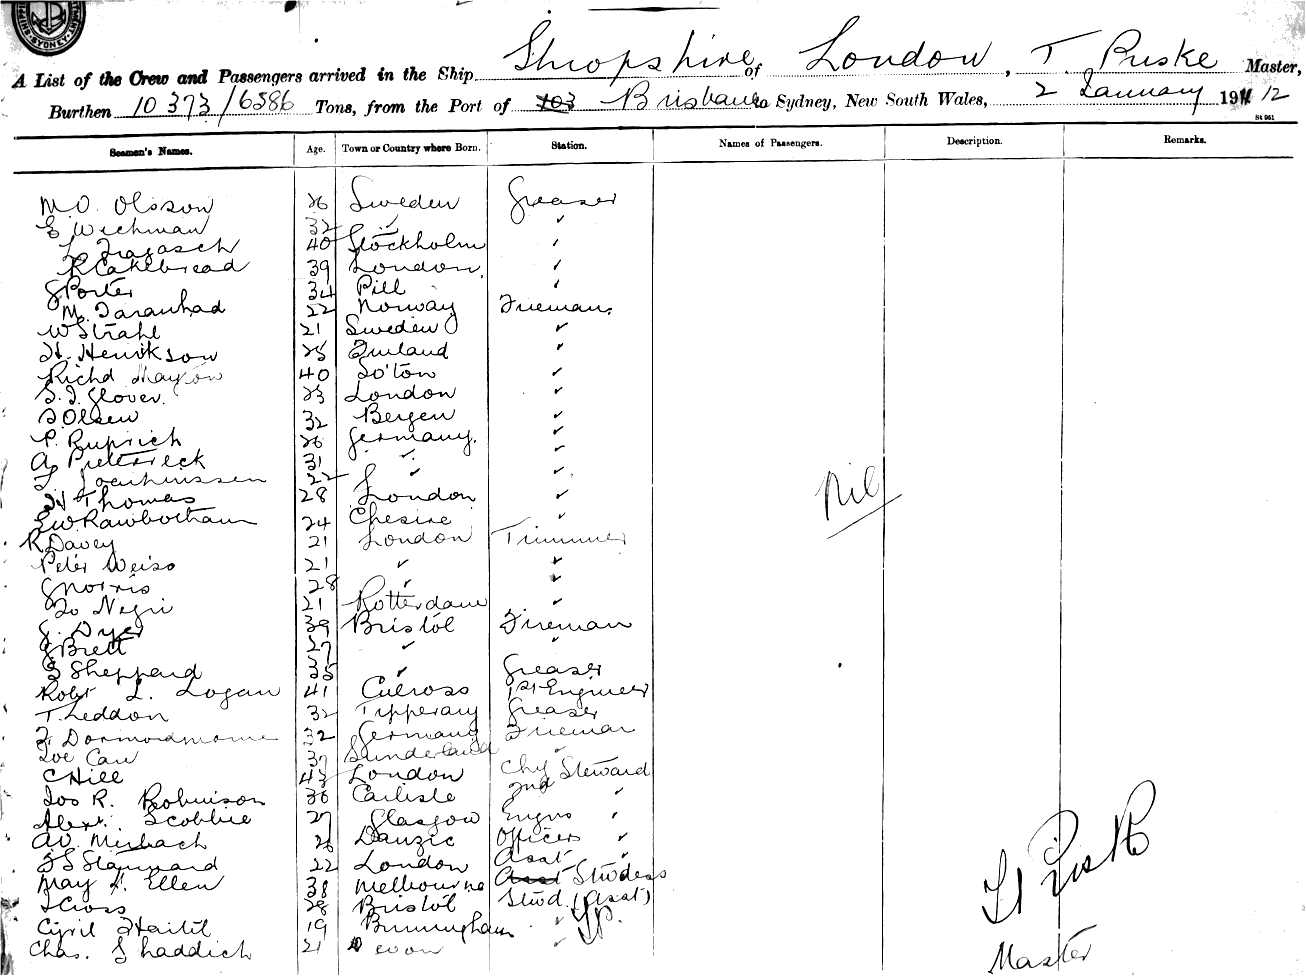 SYDNEY
A List of the Crew and Passengers arrived in the Ship Shropshire of London, T. Ruske Master,
Burthen 10373/6586 Tons, from the Port of Brisbane to Sydney, New South Wales, 2 January 1912
St 961
Seamen's Names. Age. Town or Country where Born. Station. Names of Passengers. Description. Remarks.
M.O. Olsson 26 Sweden Greaser
E Wichman 32 " "
40 Stockholm "
R Cakebread 39 London "
G Porter 34 Pill "
M. Taranhad 22 Norway Fireman
W Strahl 21 Sweden "
H. Henrikson 25 Finland "
Richd Mayton 40 So'ton "
S. J. Glover 23 London "
S Olsen 32 Bergen "
P. Ruprich 26 Germany "
31 " "
22 " "
H Thomas 28 London "
E W Rawbotham 24 Chesire "
R Davey 21 London Trimmer
Peter Weiss 21 " "
G Norris 28 " "
Negri 21 Rotterdam "
G. Dyer 39 Bristol Fireman
G Brett 27 " "
Sheppard 35 " Greaser
Robt L. Logan 41 Culross 1st Engineer
T. Leddon 32 Tipperary Greaser
32 Germany Fireman
Joe Caw 37 Sunderland "
C Hill 43 London Chf Steward
Jos R. Robinson 36 Carlisle 2nd "
Alexr. Scobbie 27 Glasgow Engrs "
26 Danzic Officers "
F S Stannard 22 London Asst "
May H. Ellen 38 Melbourne Asst Studess
Cross 28 Bristol Stwd. (Asst)
Cyril 19 Birmingham "
Chas. Shaddick 21 Devon "
Nil
Master